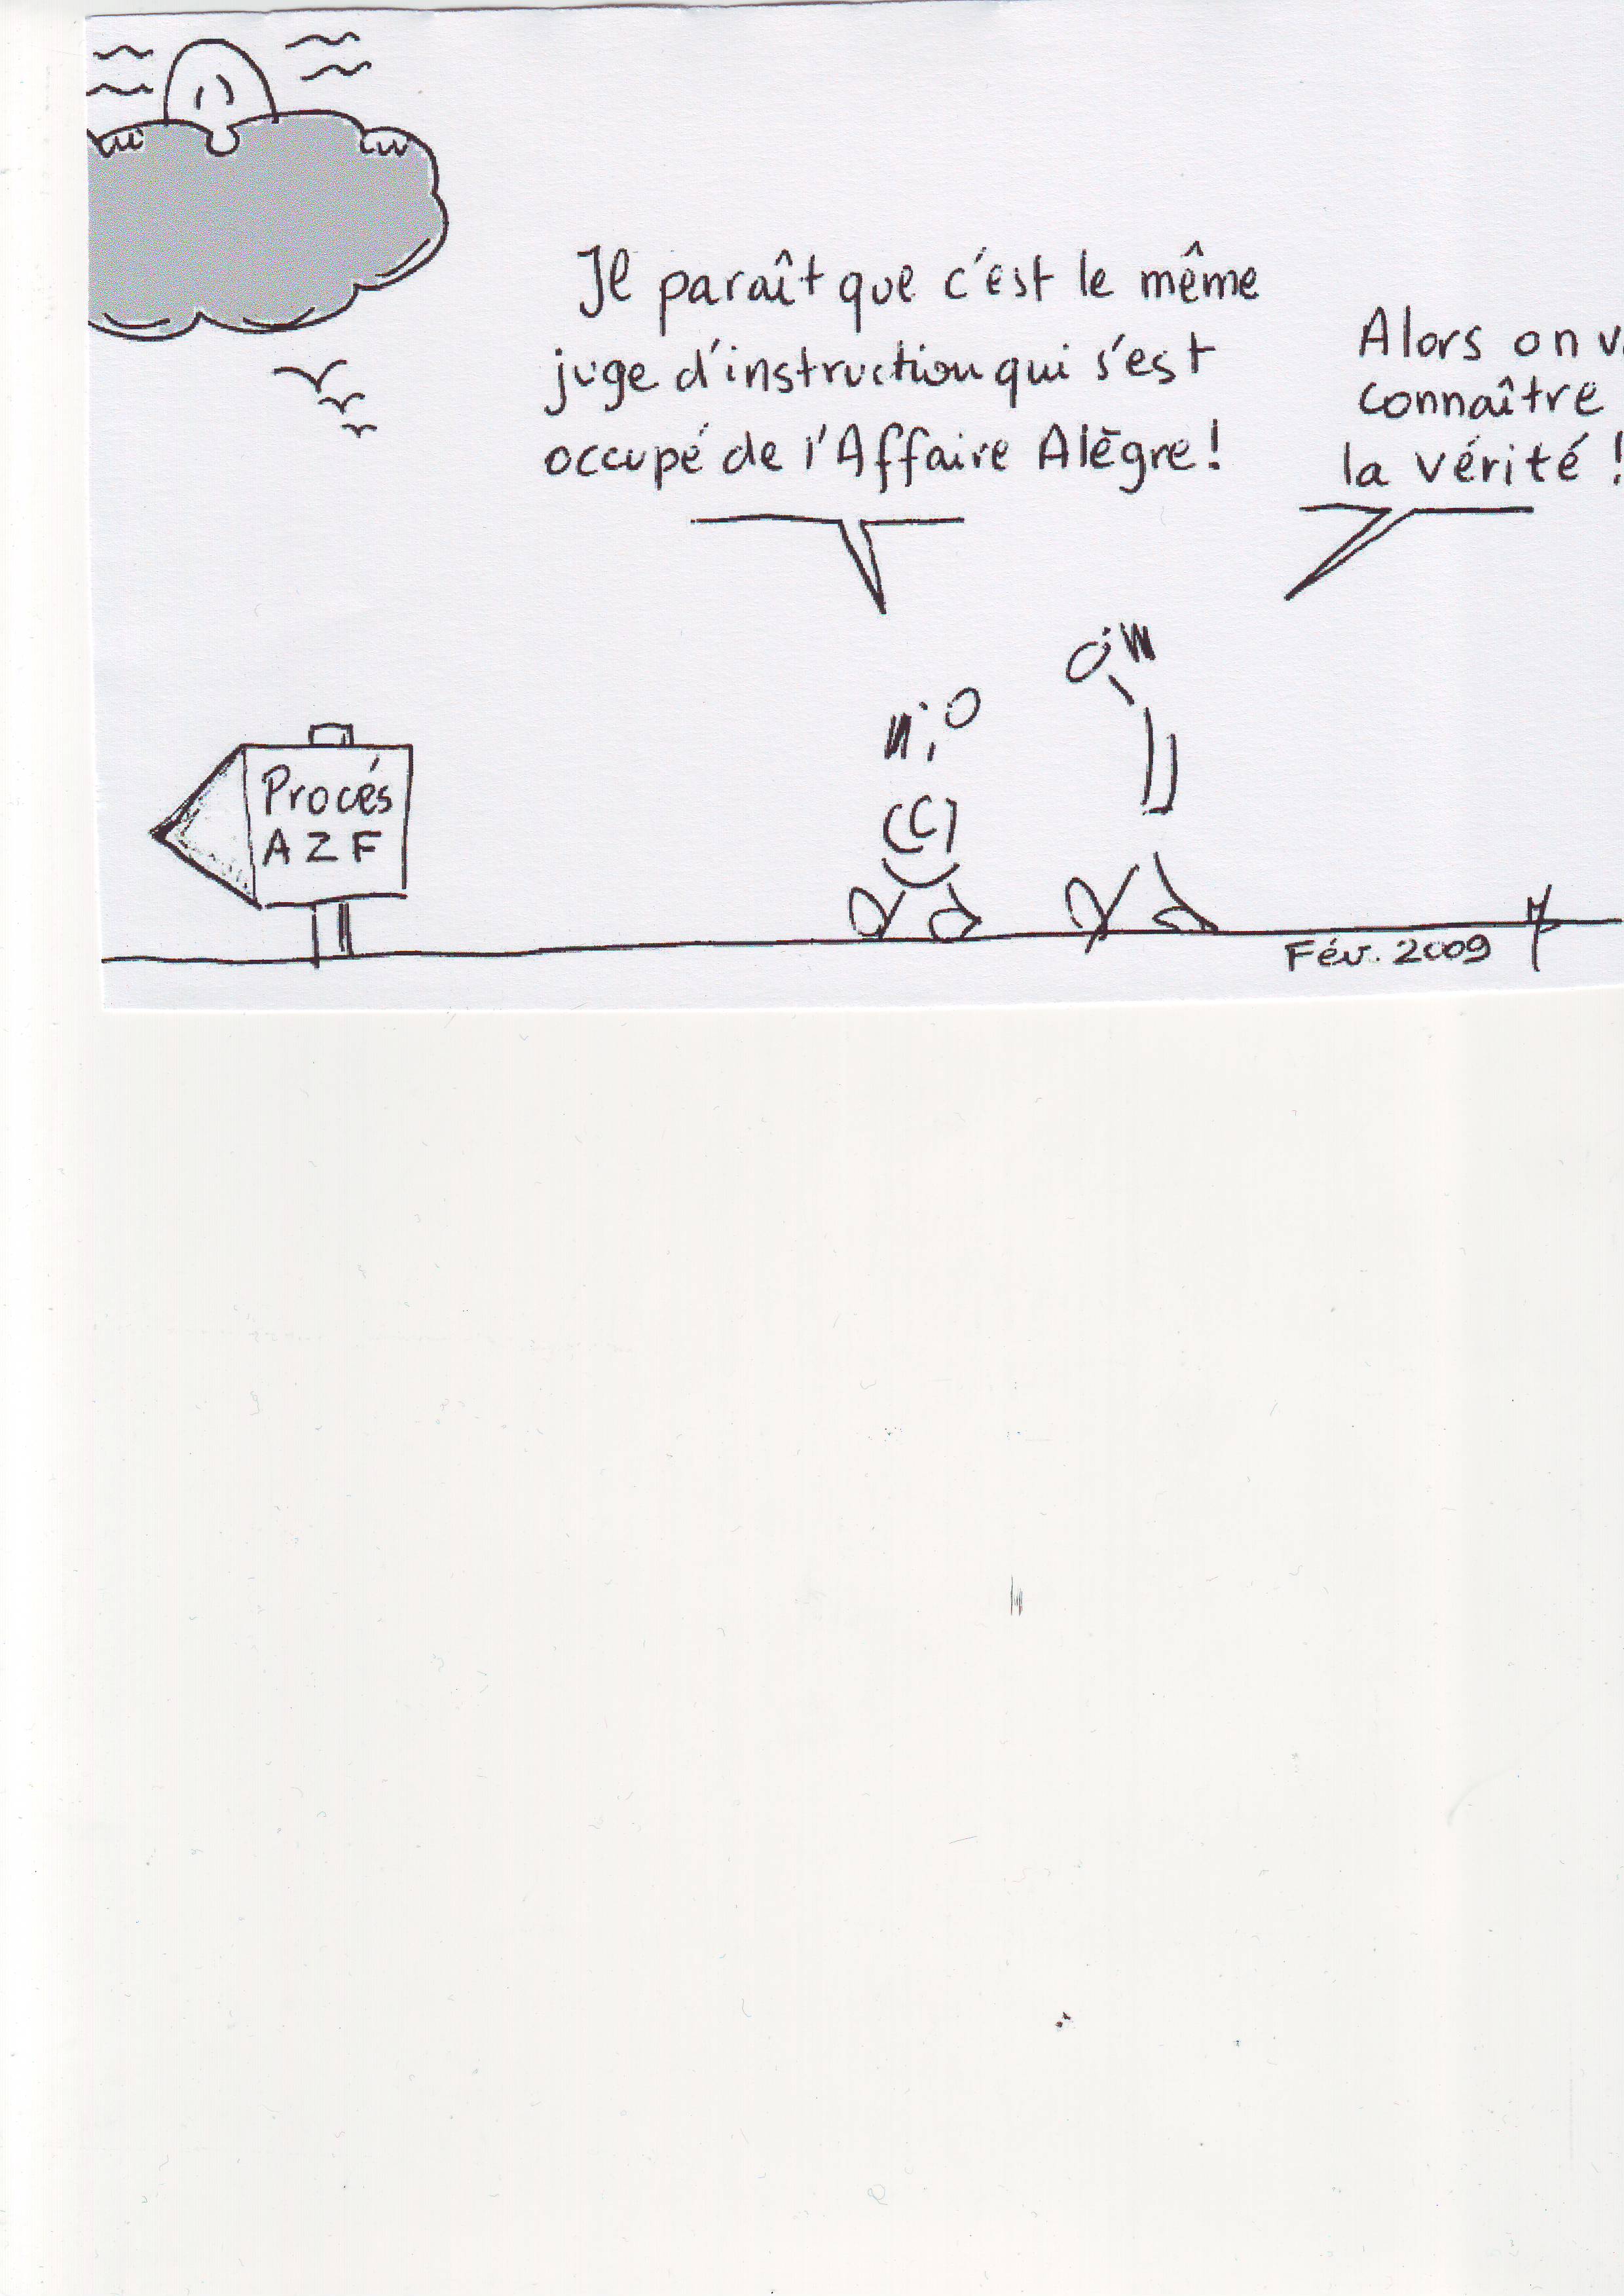 Il paraît que c'est le même
juge d'instruction qui s'est
occupé de l'Affaire Alègre!
Alors on
connaître
la vérité !
Procés
AZF
Fév. 2009